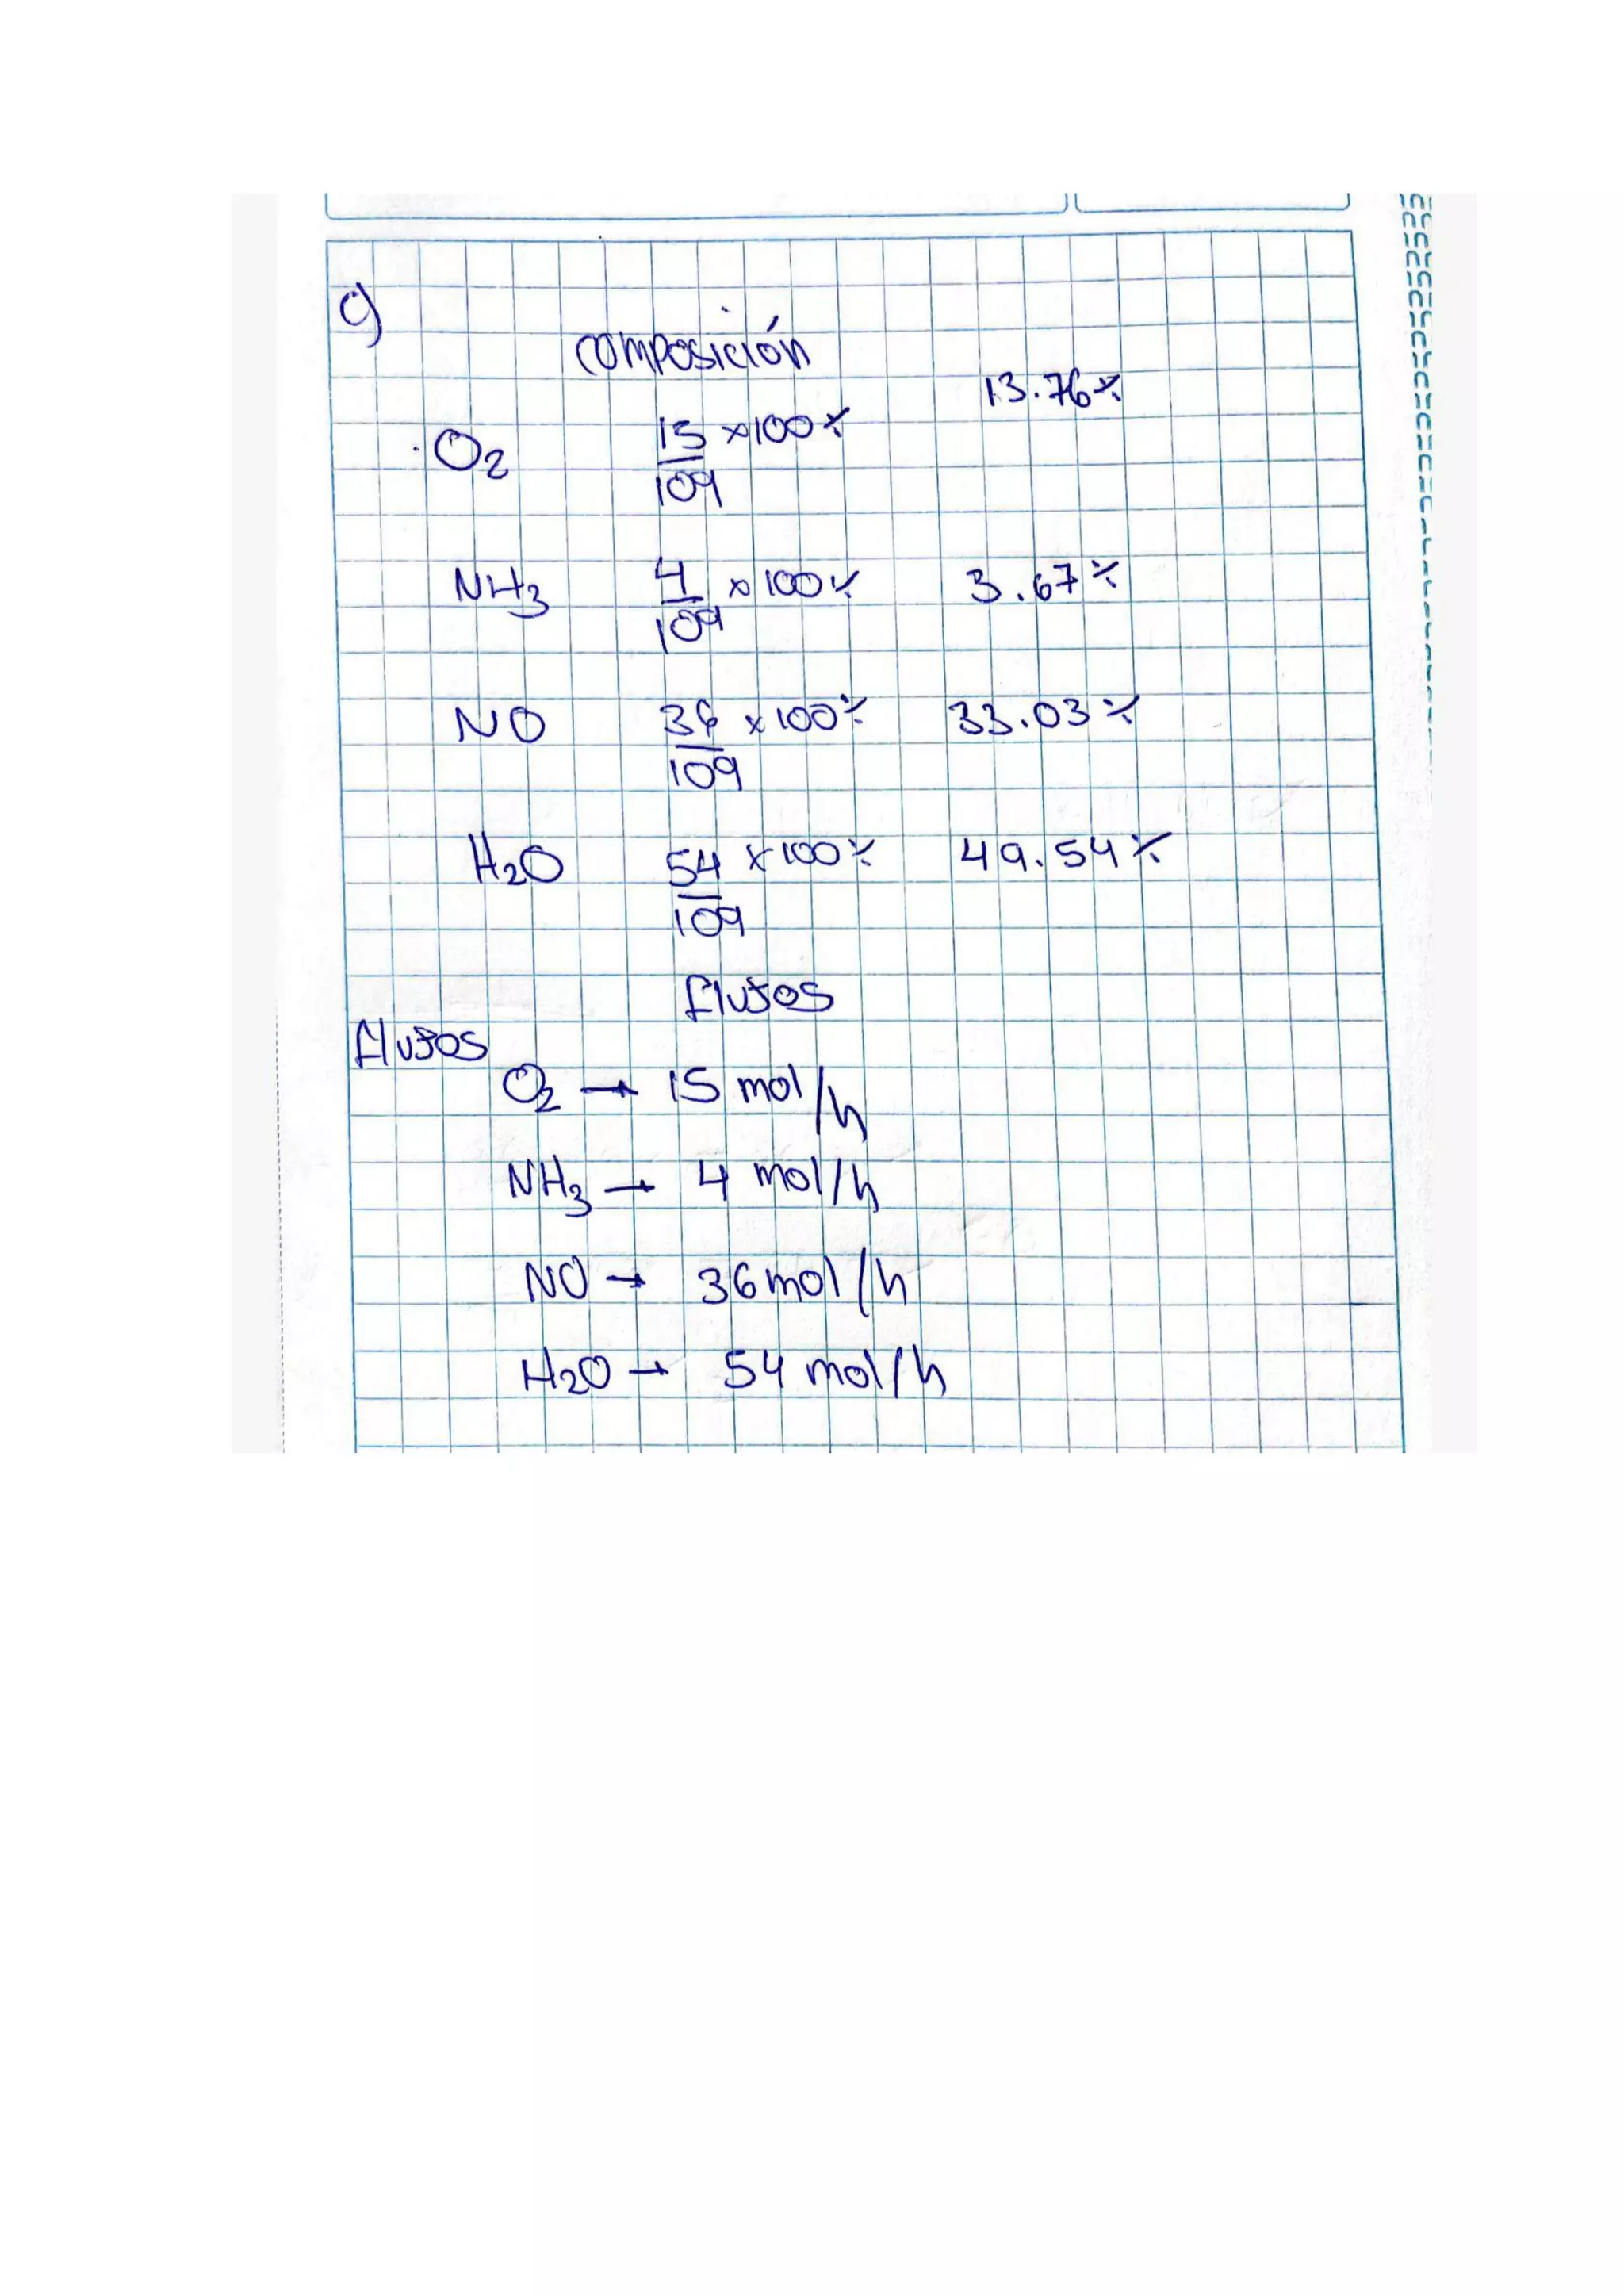 c)
composición
O2 15/109 x100% 13.76%
NH3 4/109 x100% 3.67%
NO 36/109 x100% 33.03%
H2O 54/109 x100% 49.54%
flujos
flujos
O2 → 15 mol/h
NH3 → 4 mol/h
NO → 36 mol/h
H2O → 54 mol/h